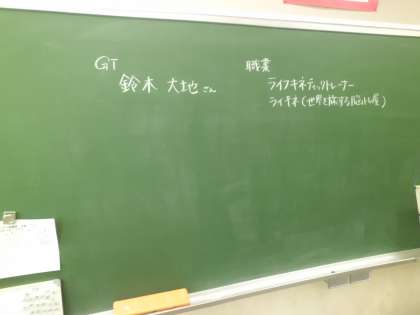 GT
鈴木 大地 さん
職業
ライフキネティックトレーナー
ライキネ(世界を旅する脳トレ屋)